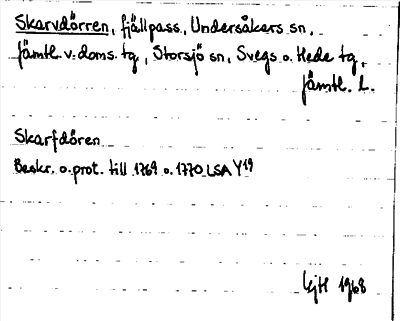 Skarvdörren, fjällpass, Undersåkers sn,
Jämtl. v. doms. tg, Storsjö sn, Svegs o. Hede tg,
Jämtl. L.
Skarfdören
Beskr. o. prot. till 1769 o. 1770 LSA Y19
1968